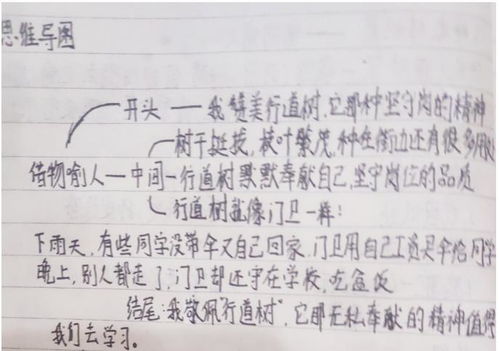 思维导图
开头——我赞美行道树,它那种坚守岗的精神
树干挺拔,枝叶繁茂,种在街边还有很多用处
借物喻人—中间—行道树默默奉献自己,坚守岗位的品质
行道树就像门卫一样:
下雨天,有些同学没带伞又自己回家,门卫用自己工资买伞给同学
晚上,别人都走了,门卫却还守在学校,吃盒饭
结尾:我敬佩“行道树”,它那无私奉献的精神值得
我们去学习。